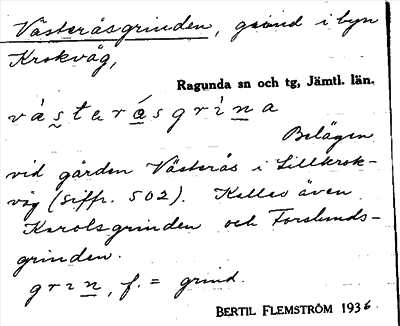 Västeråsgrinden, grind i byn
Krokvåg,
Ragunda sn och tg, Jämtl. län.
vástarásgrìna
Belägen
vid gården Västerås i Lillkrok-
våg (siffr. 502). Kallas även
Karolsgrinden och Forslunds-
grinden.
grin, f. = grind.
BERTIL FLEMSTRÖM 1936.